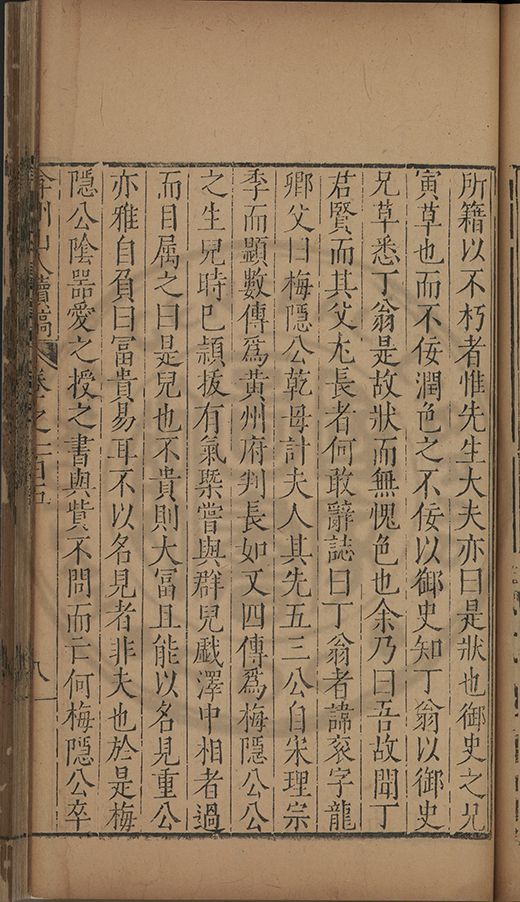 所籍以不朽者惟先生大夫亦曰是狀也御史之兄
寅草也而不佞潤色之不佞以御史知丁翁以御史
兄草悉丁翁是故狀而無愧色也余乃曰吾故聞丁
君賢而其父尤長者何敢辭誌曰丁翁者諱衮字龍
卿父曰梅隱公乾母計夫人其先五三公自宋理宗
季而顯數傳爲黃州府判長如又四傳爲梅隱公公
之生兒時已穎拔有氣槩嘗與群兒戲澤中相者過
而目屬之曰是兒也不貴則大冨且能以名見重公
亦雅自負曰冨貴易耳不以名見者非夫也於是梅
隱公陰器愛之授之書與貲不問而亡何梅隱公卒
弇州山人續稿 卷之一百五 八